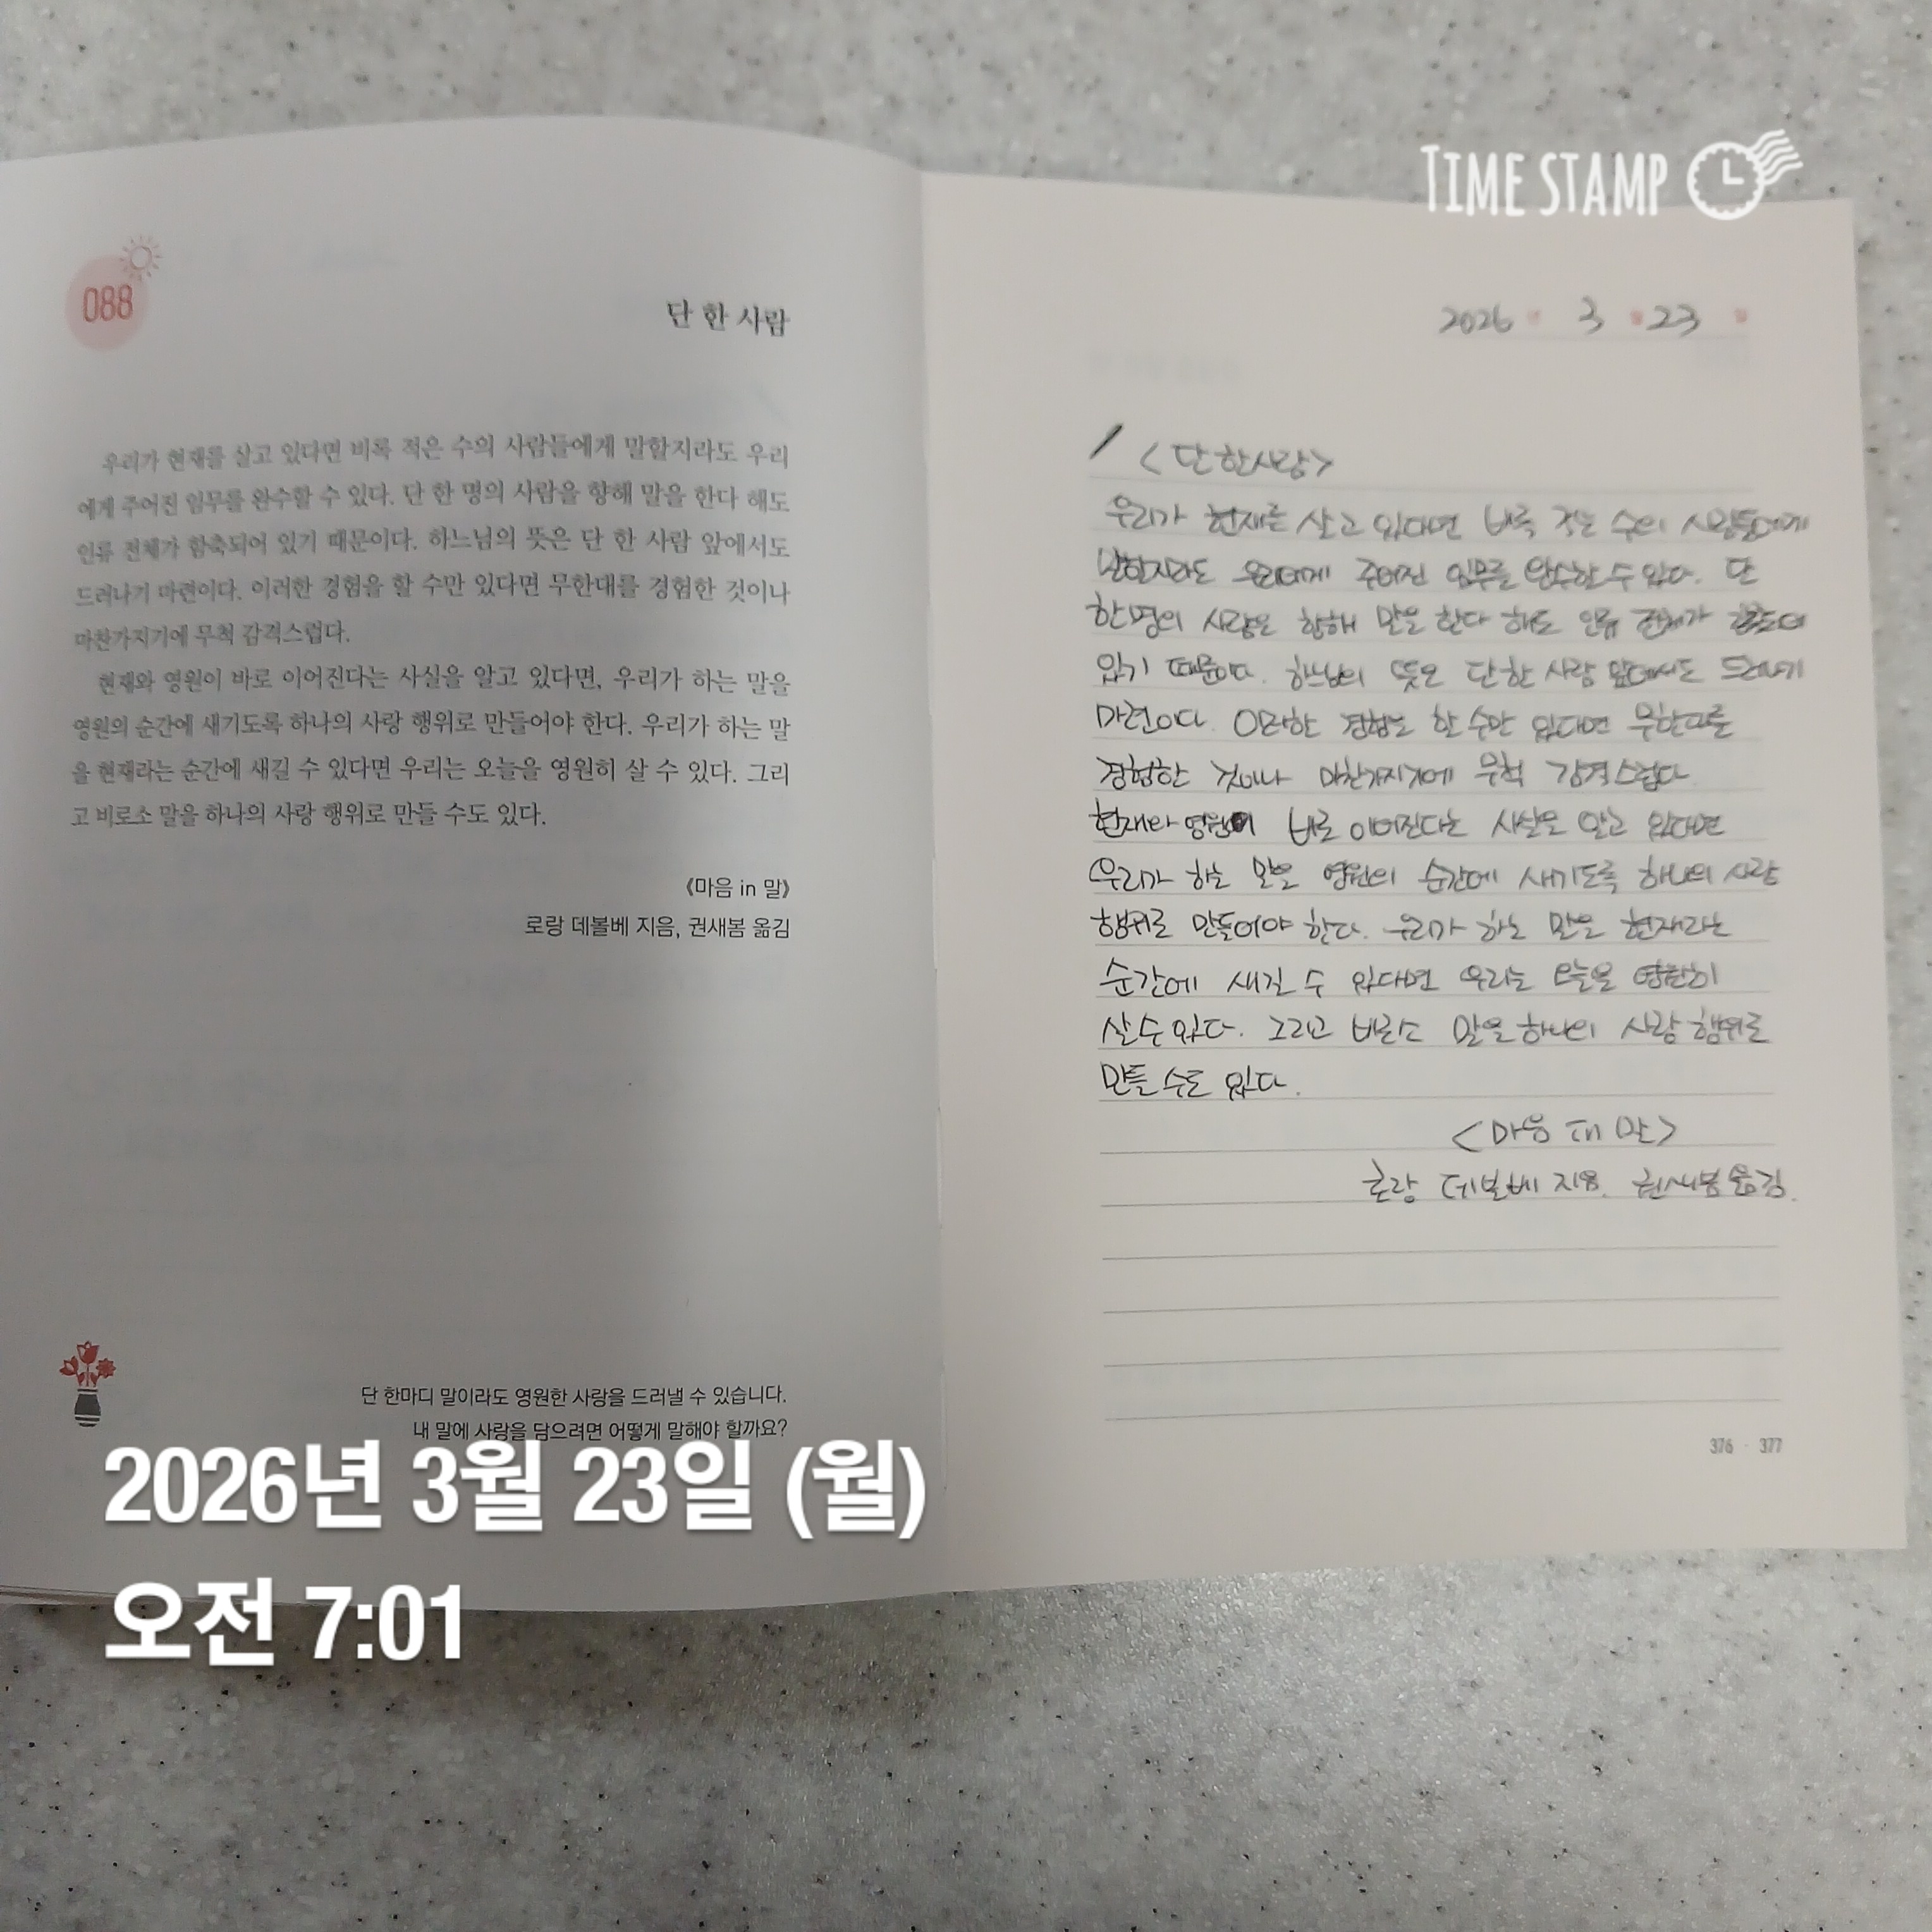 TIME STAMP
088
단 한 사람
우리가 현재를 살고 있다면 비록 적은 수의 사람들에게 말할지라도 우리
에게 주어진 임무를 완수할 수 있다. 단 한 명의 사람을 향해 말을 한다 해도
인류 전체가 함축되어 있기 때문이다. 하느님의 뜻은 단 한 사람 앞에서도
드러나기 마련이다. 이러한 경험을 할 수만 있다면 무한대를 경험한 것이나
마찬가지기에 무척 감격스럽다.
현재와 영원이 바로 이어진다는 사실을 알고 있다면, 우리가 하는 말을
영원의 순간에 새기도록 하나의 사랑 행위로 만들어야 한다. 우리가 하는 말
을 현재라는 순간에 새길 수 있다면 우리는 오늘을 영원히 살 수 있다. 그리
고 비로소 말을 하나의 사랑 행위로 만들 수도 있다.
《마음 in 말》
로랑 데볼베 지음, 권새봄 옮김
단 한마디 말이라도 영원한 사랑을 드러낼 수 있습니다.
내 말에 사랑을 담으려면 어떻게 말해야 할까요?
2026 3 23
<단 한사람>
우리가 현재를 살고 있다면 비록 적은 수의 사람들에게
말할지라도 우리에게 주어진 임무를 완수할 수 있다. 단
한명의 사람을 향해 말을 한다 해도 인류 전체가 함축되어
있기 때문이다. 하느님의 뜻은 단 한 사람 앞에서도 드러나기
마련이다. 이러한 경험을 할 수만 있다면 무한대를
경험한 것이나 마찬가지기에 무척 감격스럽다.
현재와 영원이 바로 이어진다는 사실을 알고 있다면
우리가 하는 말을 영원의 순간에 새기도록 하나의 사랑
행위로 만들어야 한다. 우리가 하는 말을 현재라는
순간에 새길 수 있다면 우리는 오늘을 영원히
살 수 있다. 그리고 비로소 말을 하나의 사랑 행위로
만들 수도 있다.
<마음 in 말>
로랑 데볼베 지음. 권새봄 옮김.
376 · 377
2026년 3월 23일 (월)
오전 7:01